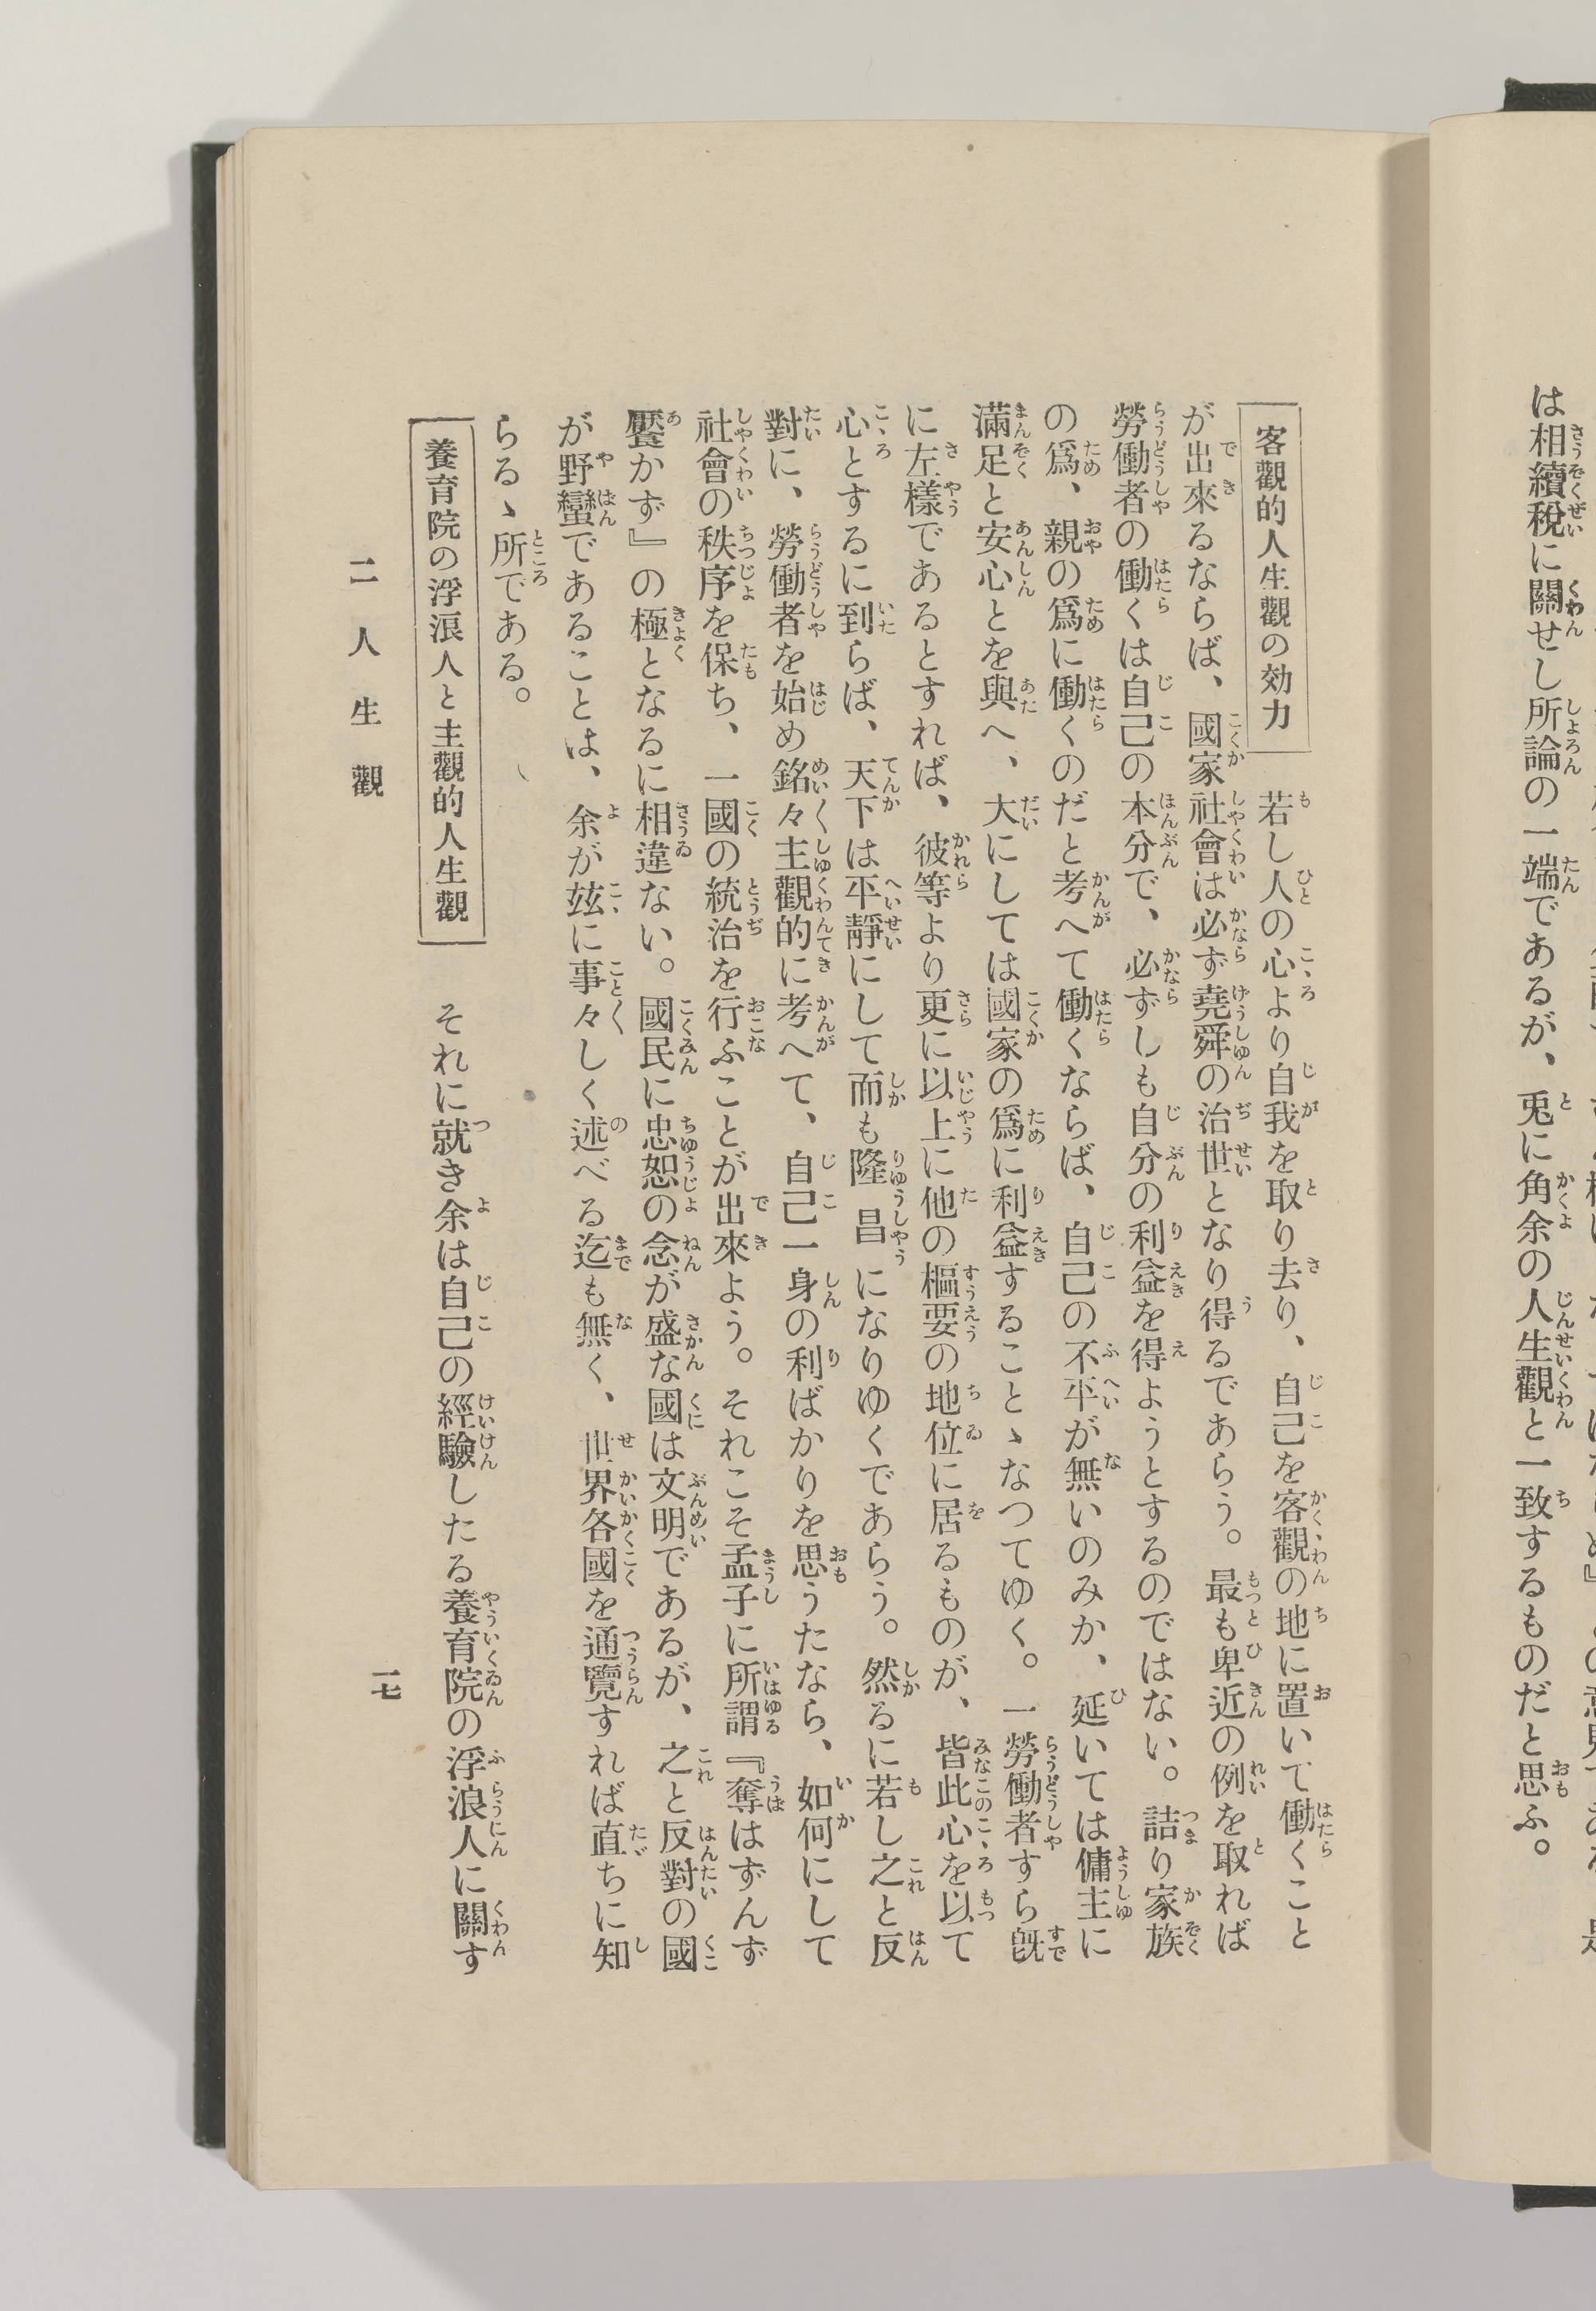 は相續税に關せし所論の一端であるが、兎に角余の人生觀と一致するものだと思ふ。
客觀的人生觀の効力　若し人の心より自我を取り去り、自己を客觀の地に置いて働くこと
が出來るならば、國家社會は必ず堯舜の治世となり得るであらう。最も卑近の例を取れば
勞働者の働くは自己の本分で、必ずしも自分の利益を得ようとするのではない。詰り家族
の爲、親の爲に働くのだと考へて働くならば、自己の不平が無いのみか、延いては傭主に
滿足と安心とを與へ、大にしては國家の爲に利益することゝなつてゆく。一勞働者すら既
に左樣であるとすれば、彼等より更に以上に他の樞要の地位に居るものが、皆此心を以て
心とするに到らば、天下は平靜にして而も隆昌になりゆくであらう。然るに若し之と反
對に、勞働者を始め銘々主觀的に考へて、自己一身の利ばかりを思うたなら、如何にして
社會の秩序を保ち、一國の統治を行ふことが出來よう。それこそ孟子に所謂『奪はずんず
饜かず』の極となるに相違ない。國民に忠恕の念が盛な國は文明であるが、之と反對の國
が野蠻であることは、余が玆に事々しく述べる迄も無く、世界各國を通覽すれば直ちに知
らるゝ所である。
養育院の浮浪人と主觀的人生觀　それに就き余は自己の經驗したる養育院の浮浪人に關す
二　人　生　觀
一七